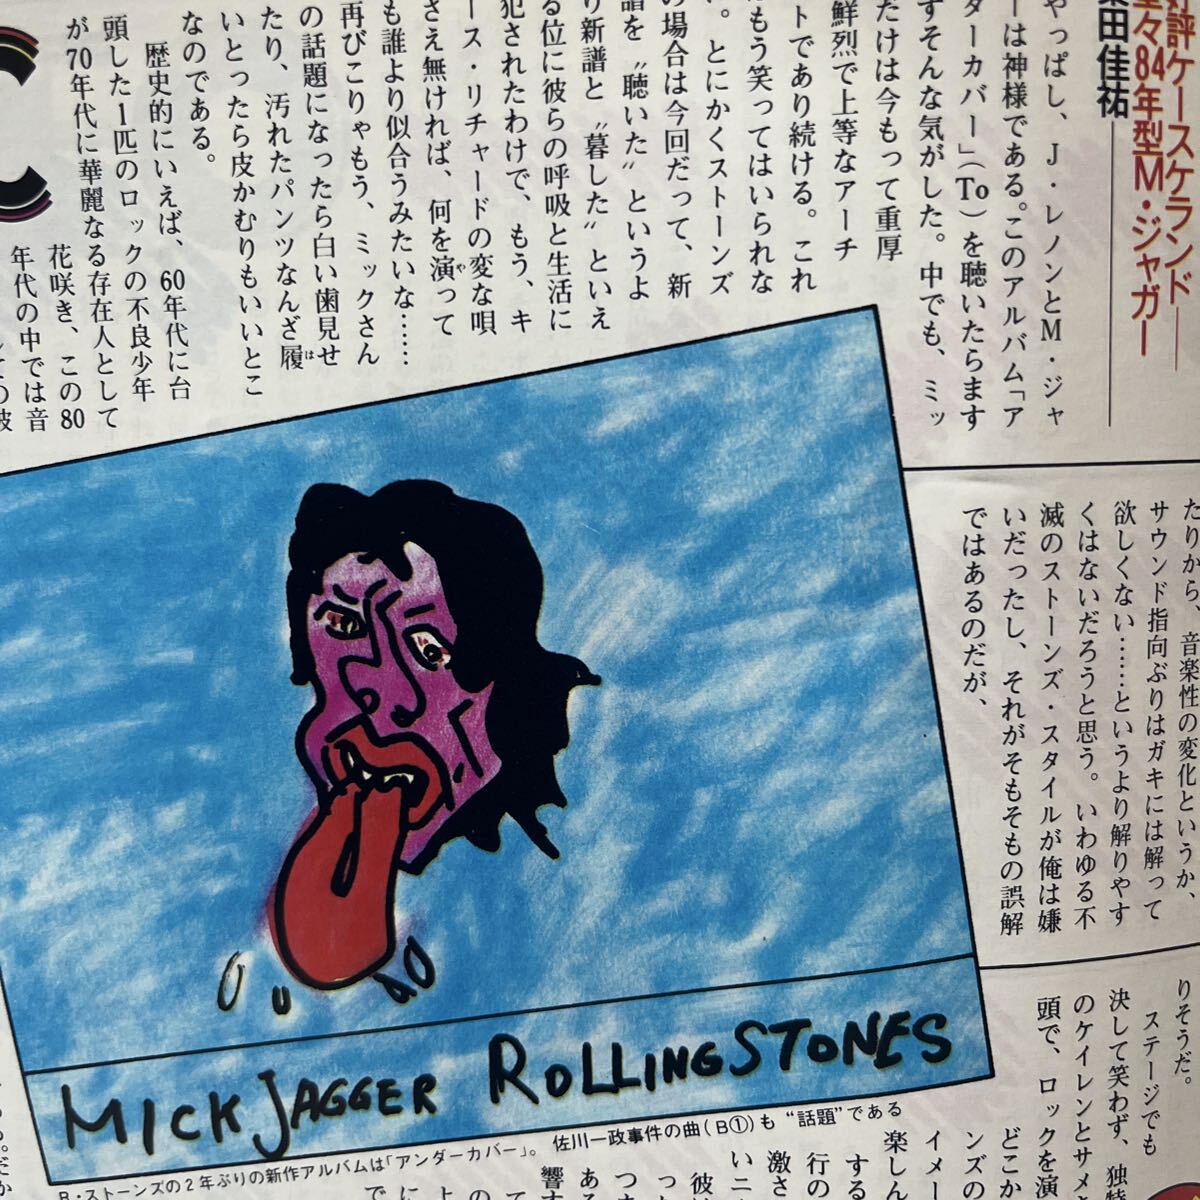 好評ケースケランド
堂々84年型M・ジャガー
桑田佳祐
やっぱし、J・レノンとM・ジャ
ーは神様である。このアルバム「ア
ダーカバー」(To)を聴いたらます
すそんな気がした。中でも、ミッ
だけは今もって重厚
鮮烈で上等なアーチ
トであり続ける。これ
もう笑ってはいられな
。とにかくストーンズ
の場合は今回だって、新
譜を〝聴いた〟というよ
り新譜と〝暮した〟といえ
る位に彼らの呼吸と生活に
犯されたわけで、もう、キ
ース・リチャードの変な唄
さえ無ければ、何を演って
も誰より似合うみたいな……
再びこりゃもう、ミックさん
の話題になったら白い歯見せ
たり、汚れたパンツなんざ履
いとったら皮かむりもいいとこ
なのである。
歴史的にいえば、60年代に台
頭した1匹のロックの不良少年
が70年代に華麗なる存在人として
花咲き、この80
年代の中では音
たりから、音楽性の変化というか、
サウンド指向ぶりはガキには解って
欲しくない……というより解りやす
くはないだろうと思う。いわゆる不
滅のストーンズ・スタイルが俺は嫌
いだったし、それがそもそもの誤解
ではあるのだが、
りそうだ。
ステージでも
決して笑わず、独特
のケイレンとサメ
頭で、ロックを演
どこか
ンズの
イメー
楽しん
する
行の
激さ
いニ
彼は
MICK JAGGER ROLLING STONES
R・ストーンズの2年ぶりの新作アルバムは「アンダーカバー」。佐川一政事件の曲(B①)も〝話題〟である